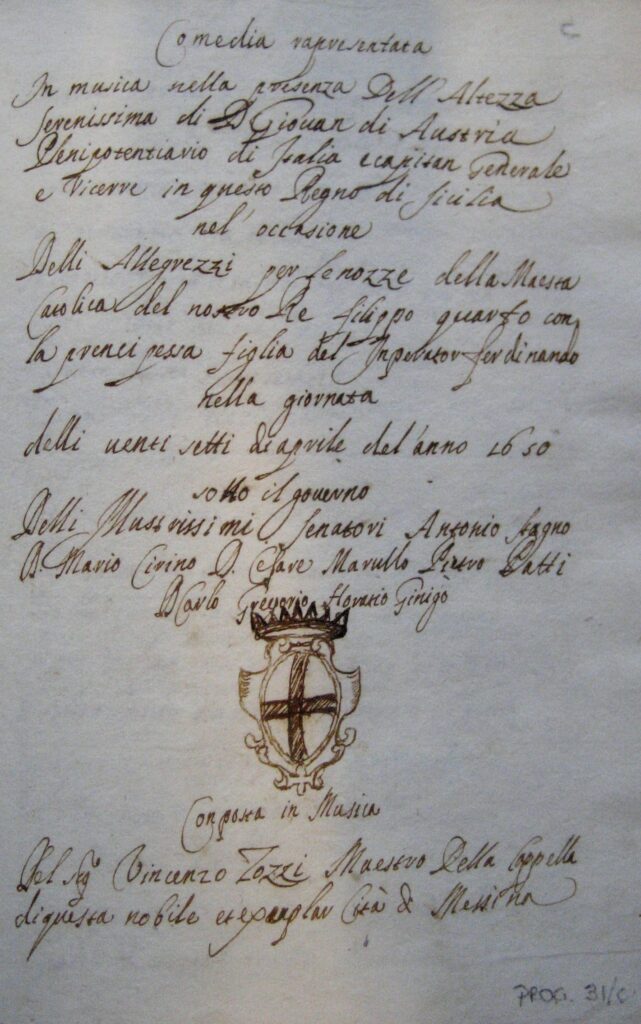 C
Comedia rapresentata
In musica nella presenza Dell' Altezza
Serenissima di D Giovan di Austria
Plenipotentiario di Italia e capitan Generale
e Vicerre in questo Regno di Sicilia
nel' occasione
Delli Allegrezzi per le nozze della Maesta
Catolica del nostro Re filippo quarto con
la prencipessa figlia del Inperator ferdinando
nella giornata
delli venti setti di aprile del'anno 1650
sotto il governo
Delli Illustrissimi Senatori Antonio stagno
D. Mario Cirino D. Cesare Marullo Pietro Patti
D Carlo Gregorio Horatio Ginigò
Conposta in Musica
Del Sigr Vincenzo Tozzi Maestro Della Cappella
di questa nobile et exenplar Cità di Messina
PROG. 31/C